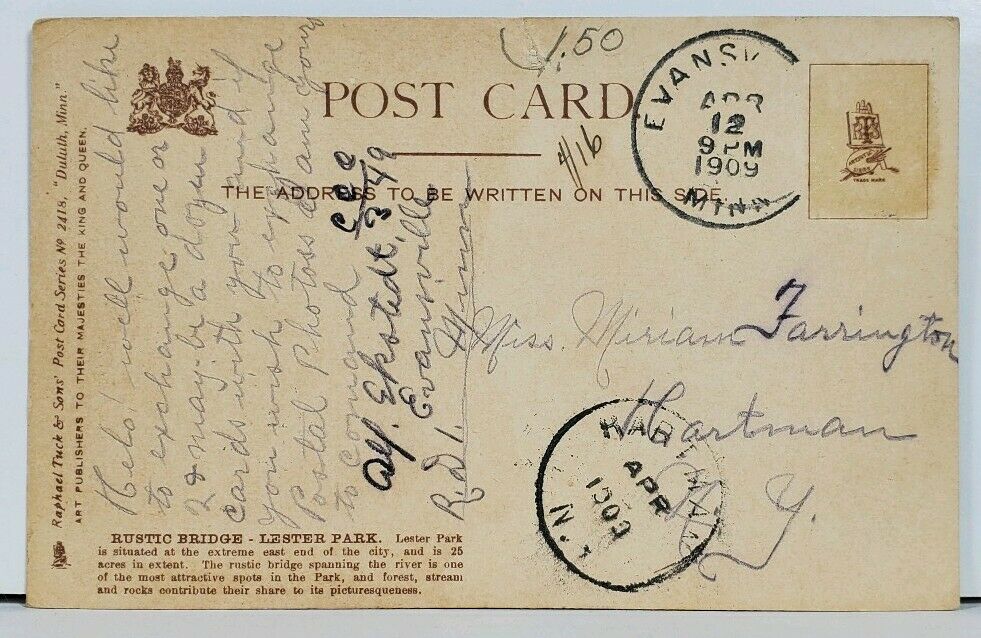 1.50
POST CARD
#16
THE ADDRESS TO BE WRITTEN ON THIS SIDE
EVANSV
APR
12
9 PM
1909
MINN
TRADE MARK
Raphael Tuck & Sons' Post Card Series No. 2418, "Duluth, Minn."
ART PUBLISHERS TO THEIR MAJESTIES THE KING AND QUEEN.
Helo! well would like
to exchange one or
2 or may-be a dozen
cards with you and if
you wish to exchange
Postal Photoss am yours
to comand
Alf. Ekstedt,
Evansville
R.D. 1. Minn
Miss. Miriam Farrington
Hartman
N. Y.
HARTMAN
APR
1909
N.Y.
RUSTIC BRIDGE - LESTER PARK. Lester Park
is situated at the extreme east end of the city, and is 25
acres in extent. The rustic bridge spanning the river is one
of the most attractive spots in the Park, and forest, stream
and rocks contribute their share to its picturesqueness.